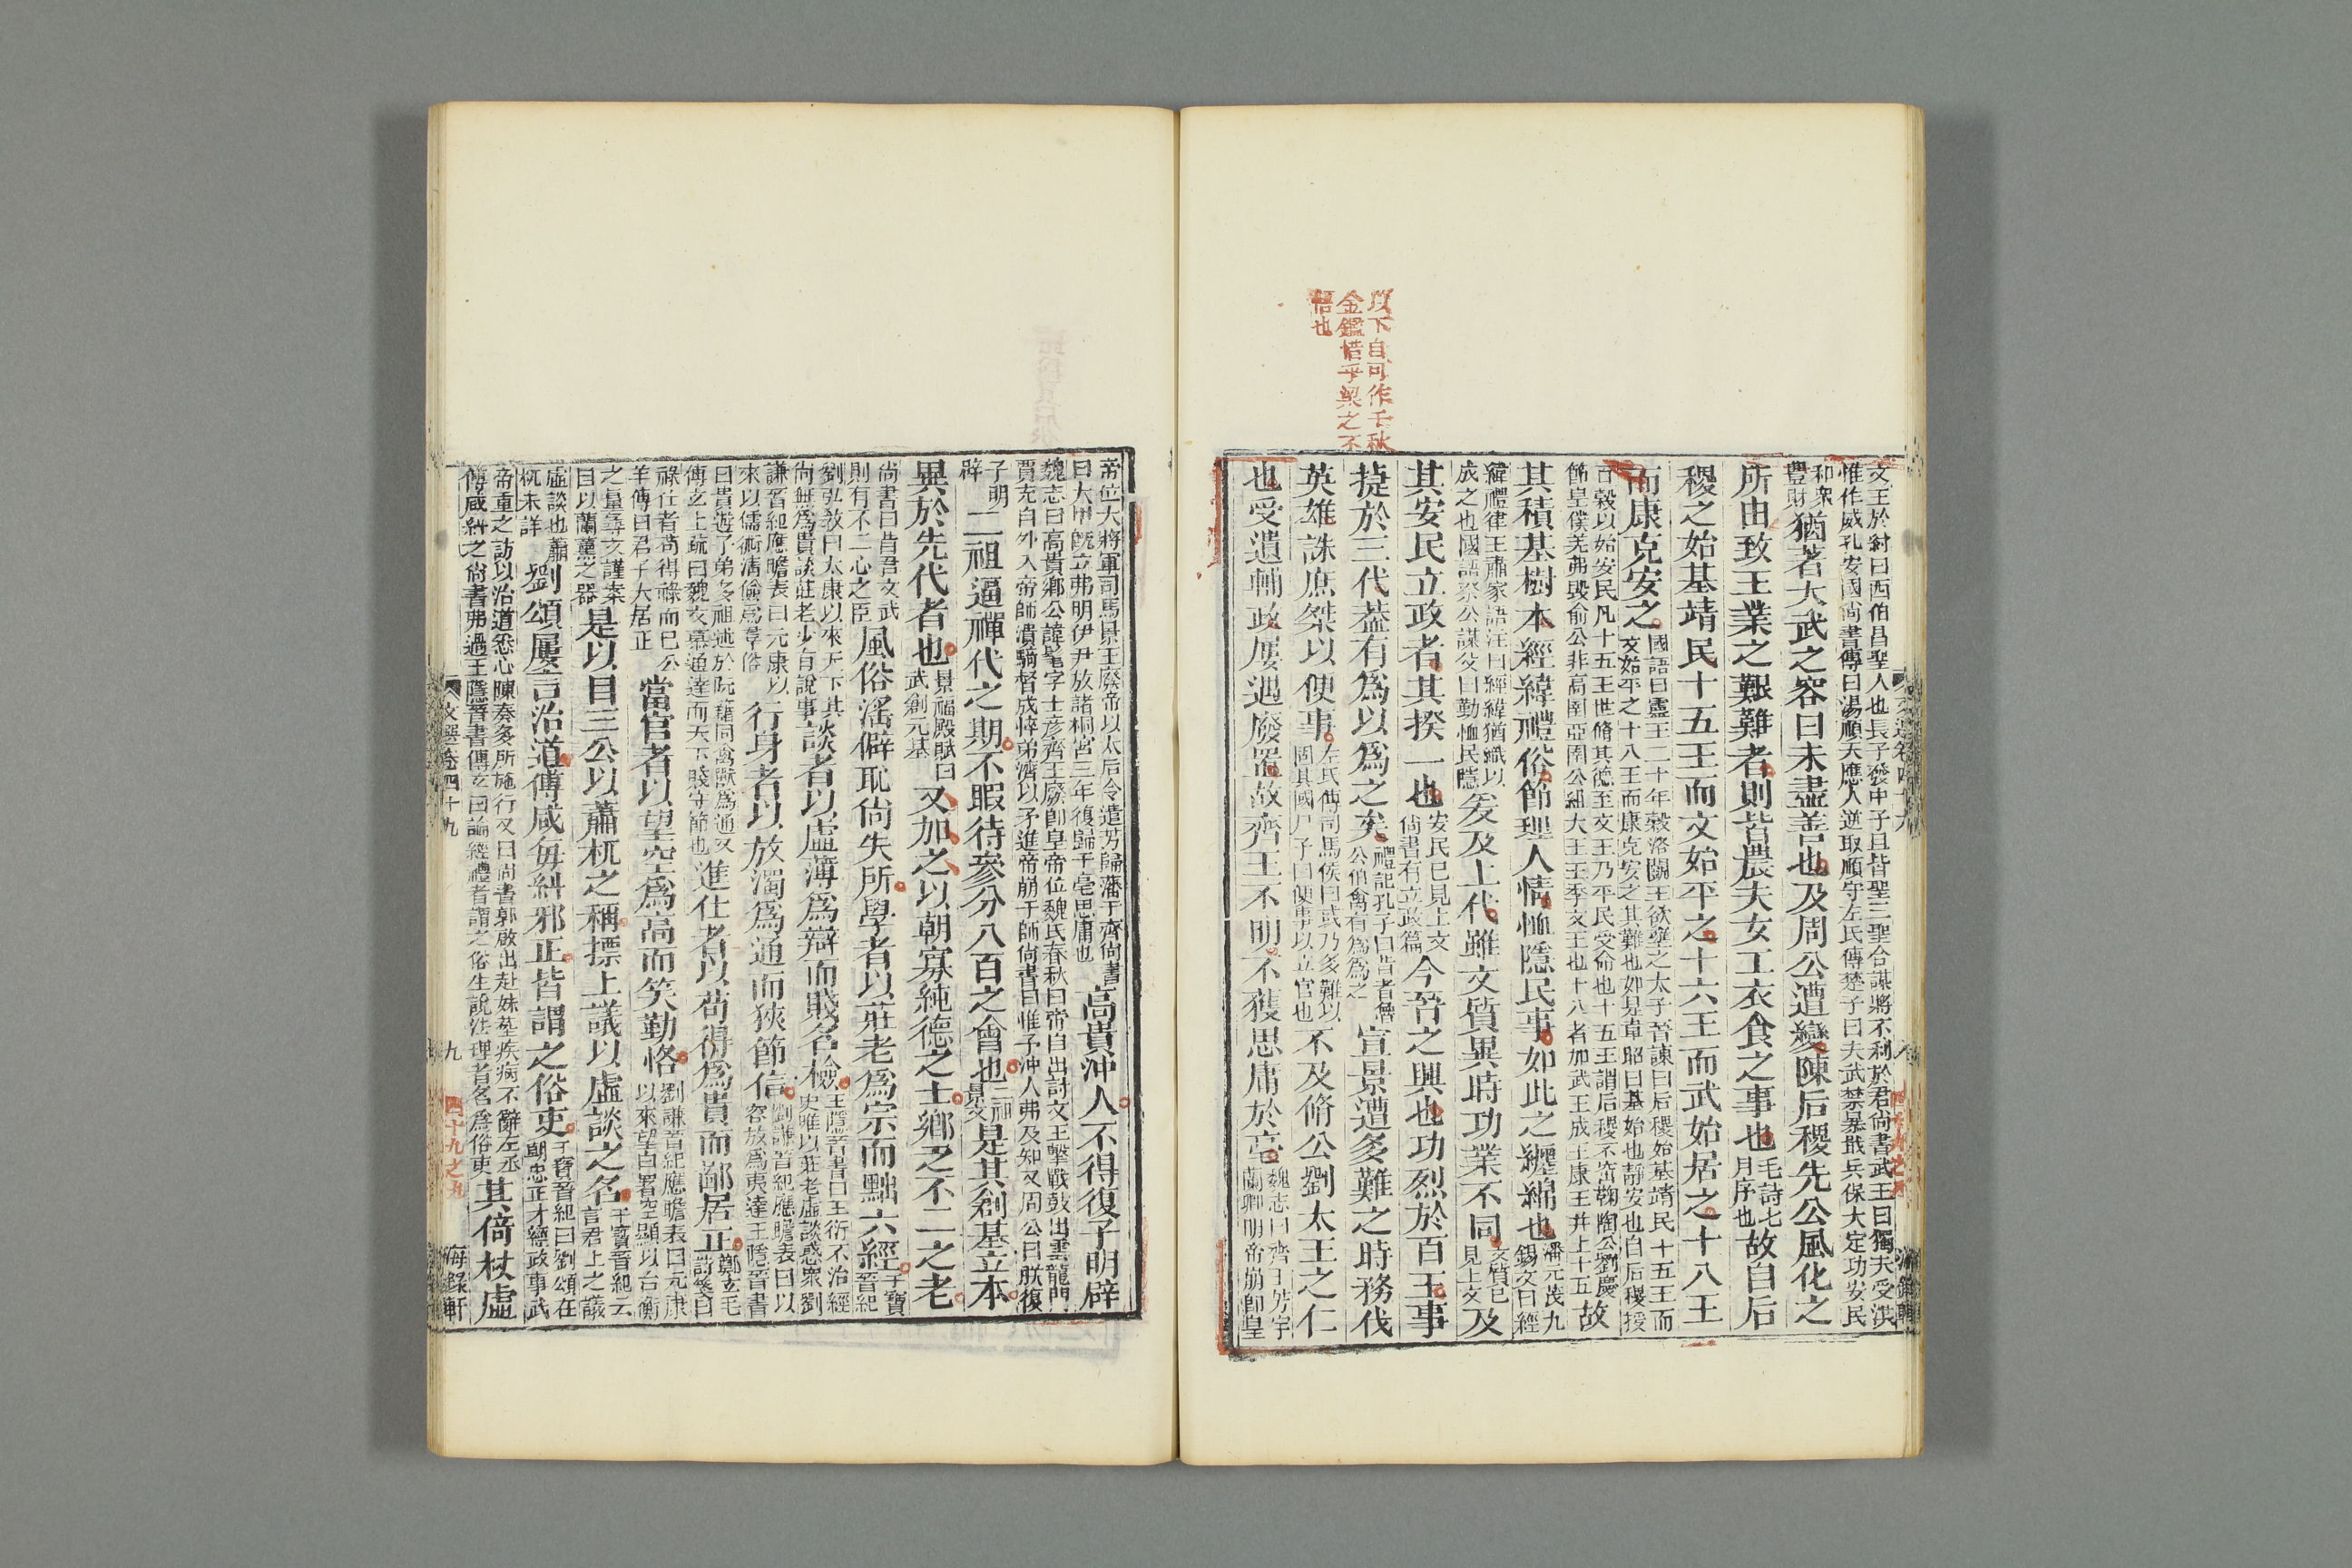 以下自可作千秋
金鑑惜乎累之不
悟也
文王於紂曰西伯昌聖人也長子發中子旦皆聖三聖合謀將不利於君尚書武王曰獨夫受洪
惟作威孔安國尚書傳曰湯順天應人逆取順守左氏傳楚子曰夫武禁暴戢兵保大定功安民
和衆
豐財
猶著大武之容曰未盡善也及周公遭變陳后稷先公風化之
所由致王業之艱難者則皆農夫女工衣食之事也
毛詩七
月序也
故自后
稷之始基靖民十五王而文始平之十六王而武始居之十八王
而康克安之
國語曰靈王二十年穀洛鬬王欲壅之太子晉諫曰后稷始基靖民十五王而
文始平之十八王而康克安之其難也如是韋昭曰基始也靜安也自后稷授
百穀以始安民凡十五王世脩其德至文王乃平民受命也十五王謂后稷不窋鞠陶公劉慶
節皇僕羌弗毀俞公非高圉亞圉公組大王王季文王也十八者加武王成王康王并上十五
故
其積基樹本經緯禮俗節理人情恤隱民事如此之纏綿也
潘元茂九
錫文曰經
緯禮律王肅家語注曰經緯猶織以
成之也國語祭公謀父曰勤恤民隱
爰及上代雖文質異時功業不同
文質已
見上文
及
其安民立政者其揆一也
安民已見上文
尚書有立政篇
今晉之興也功烈於百王事
捷於三代葢有爲以爲之矣
禮記孔子曰昔者魯
公伯禽有爲爲之
宣景遭多難之時務伐
英雄誅庶桀以便事
左氏傳司馬侯曰或乃多難以
固其國尸子曰便事以立官也
不及脩公劉太王之仁
也受遺輔政屢遇廢置故齊王不明不獲思庸於亳
魏志曰齊王芳字
蘭卿明帝崩卽皇
帝位大將軍司馬景王廢帝以太后令遣芳歸藩于齊尚書
曰大甲旣立弗明伊尹放諸桐宮三年復歸于亳思庸也
高貴沖人不得復子明辟
魏志曰高貴鄉公諱髦字士彦齊王廢卽皇帝位魏氏春秋曰帝自出討文王擊戰鼓出雲龍門
賈充自外入帝師潰騎督成倅弟濟以矛進帝崩于師尚書曰惟予沖人弗及知又周公曰朕復
子明
辟
二祖逼禪代之期不暇待參分八百之會也
二祖
景文
是其創基立本
異於先代者也
景福殿賦曰
武創元基
又加之以朝寡純德之士鄉乏不二之老
尚書曰昔君文武
則有不二心之臣
風俗淫僻恥尚失所學者以莊老爲宗而黜六經
干寶
晉紀
劉弘敎曰太康以來天下共
尚無爲貴談莊老少有說事
談者以虛薄爲辯而賤名檢
王隱晉書曰王衍不治經
史唯以莊老虛談惑衆劉
謙晉紀應瞻表曰元康以
來以儒術清儉爲羣俗
行身者以放濁爲通而狹節信
劉謙晉紀應瞻表曰以
容放爲夷達王隱晉書
曰貴遊子弟多祖述於阮籍同禽獸爲通又
傅玄上疏曰魏文慕通達而天下賤守節也
進仕者以苟得爲貴而鄙居正
鄭玄毛
詩箋曰
祿仕者苟得祿而巳公
羊傳曰君子大居正
當官者以望空爲高而笑勤恪
劉謙晉紀應瞻表曰元康
以來望白署空顯以台衡
之量尋文謹案
目以蘭薰之器
是以目三公以蕭杌之稱摽上議以虛談之名
干寶晉紀云
言君上之議
虛談也蕭
杌未詳
劉頌屢言治道傅咸每糾邪正皆謂之俗吏
干寶晉紀曰劉頌在
朝忠正才經政事武
帝重之訪以治道悉心陳奏多所施行又曰尚書郭啟出赴妹墓疾病不辭左丞
傅咸糾之尚書弗過王隱晉書傅玄曰論經禮者謂之俗生說法理者名爲俗吏
其倚杖虛
文選卷四十九
九
四十九之九
海錄軒